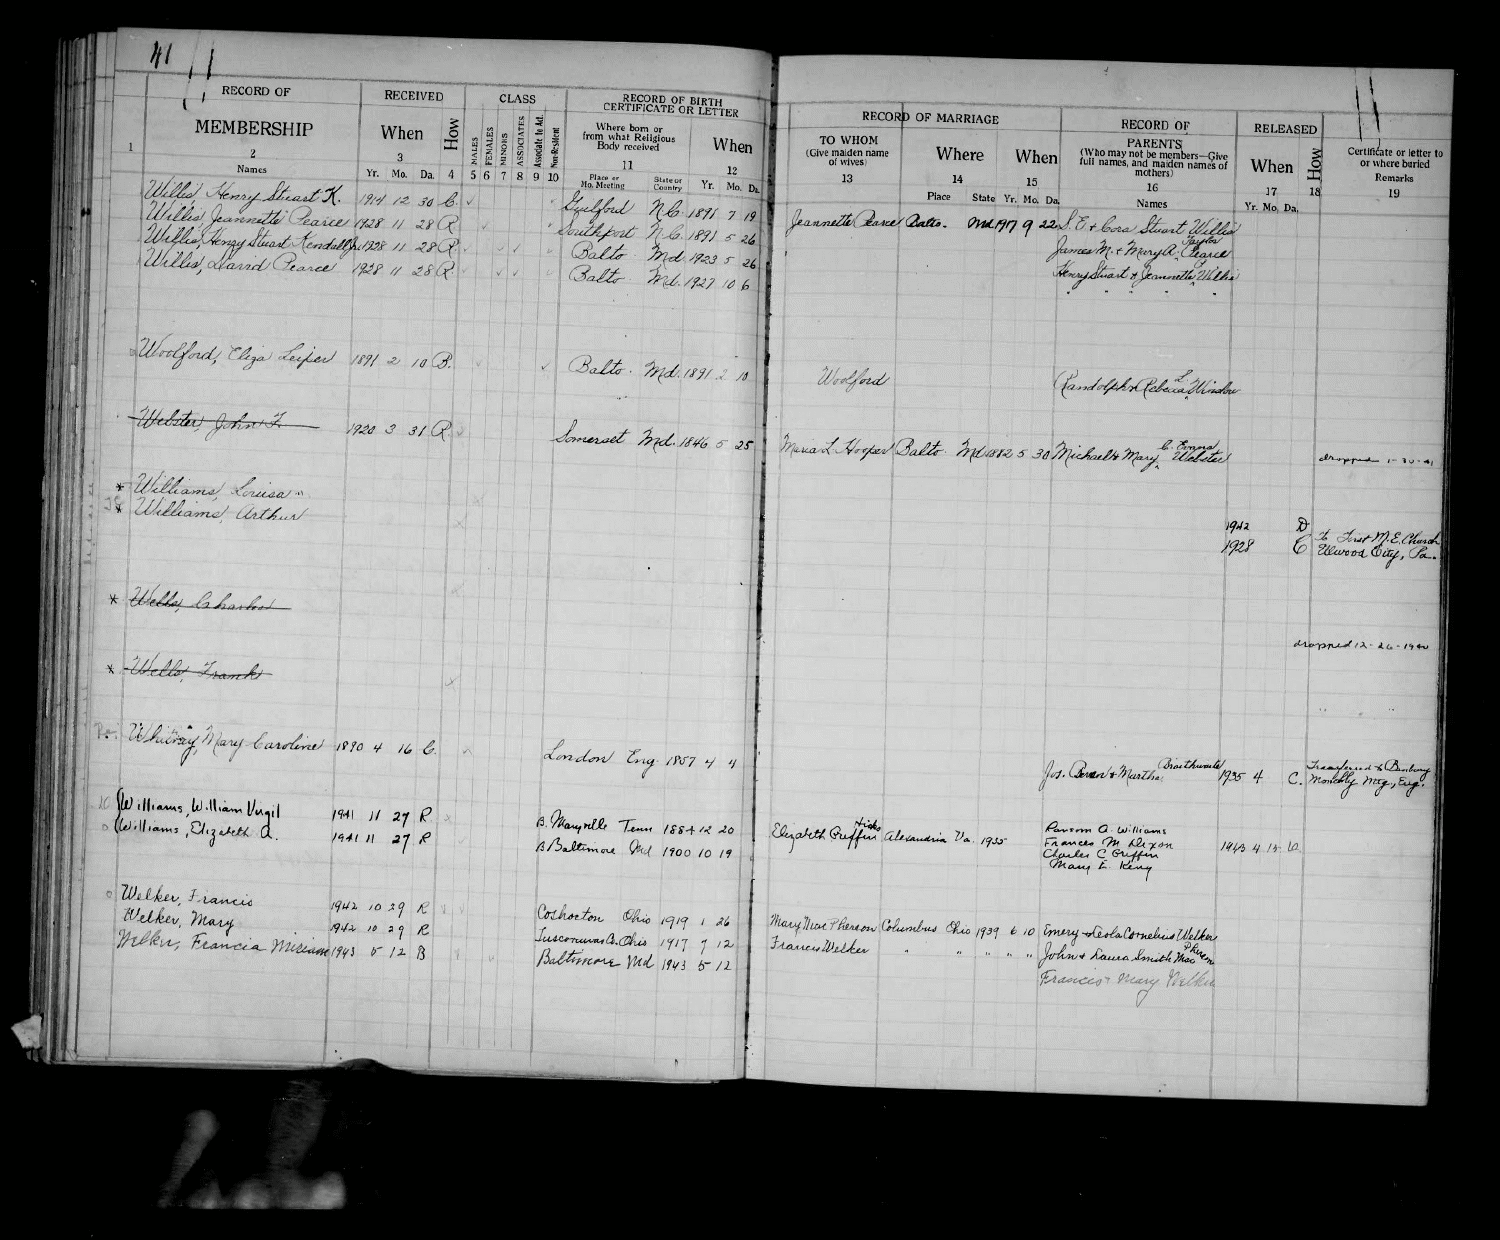 41
RECORD OF MEMBERSHIP
RECEIVED
CLASS
RECORD OF BIRTH CERTIFICATE OR LETTER
RECORD OF MARRIAGE
RECORD OF PARENTS
(Who may not be members—Give full names, and maiden names of mothers)
RELEASED
When How MALES FEMALES MINORS ASSOCIATES Associate to Ad. Non-Resident
Where born or from what Religious Body received
When
TO WHOM (Give maiden name of wives)
Where When
When How
Certificate or letter to or where buried
Remarks
1 2 3 4 5 6 7 8 9 10 11 12 13 14 15 16 17 18 19
Names Yr. Mo. Da. Place or Mo. Meeting State or Country Yr. Mo. Da. Place State Yr. Mo. Da. Names Yr. Mo. Da.
Willis, Henry Stuart K. 1914 12 30 C. Guilford N.C. 1891 7 19 Jeannette Pearce Balto. Md 1917 9 22 S. E. & Cora Stuart Willis
Willis, Jeannette Pearce 1928 11 28 R. Southport N.C. 1891 5 26 James M. & Mary A. Taylor Pearce
Willis, Henry Stuart Kendall Jr. 1928 11 28 R. Balto Md. 1923 5 26 Henry Stuart & Jeannette P. Willis
Willis, David Pearce 1928 11 28 R. Balto Md. 1927 10 6 " " " " "
Woolford, Eliza Leiper 1891 2 10 B. Balto. Md. 1891 2 10 Woolford Randolph & Rebecca L. Winslow
Webster, John F. 1920 3 31 R. Somerset Md. 1846 5 25 Maria L. Hooper Balto. Md 1882 5 30 Michael & Mary C. Webster dropped 1-30-41
* Williams, Louisa 1942 D
* Williams, Arthur 1928 C To First M.E. Church
Ellwood City, Pa.
* Wells, Charles dropped 12-26-1940
* Wells, Frank " "
Whitney, Mary Caroline 1890 4 16 C. London Eng. 1857 4 4 Jos. Bevan & Martha Braithwaite 1935 4 C. Transferred to Banbury
Monthly Mtg., Eng.
Williams, William Virgil 1941 11 27 R B. Maryville Tenn 1884 12 20 Elizabeth Griffin Hicks Alexandria Va. 1935 Ransom A. Williams
Frances M. Dixon
Williams, Elizabeth A. 1941 11 27 R B Baltimore Md 1900 10 19 Charles C Griffin 1943 4 15
Mary E. King
Welker, Francis 1942 10 29 R Coshocton Ohio 1919 1 26 Mary MacPherson Columbus Ohio 1939 6 10 Emery & Leola Cornelius Welker
Welker, Mary 1942 10 29 R Tuscarawas Co. Ohio 1917 7 12 Francis Welker " " " " " John & Laura Smith MacPherson
Welker, Francia Miriam 1943 5 12 B Baltimore Md 1943 5 12 Francis & Mary Welker